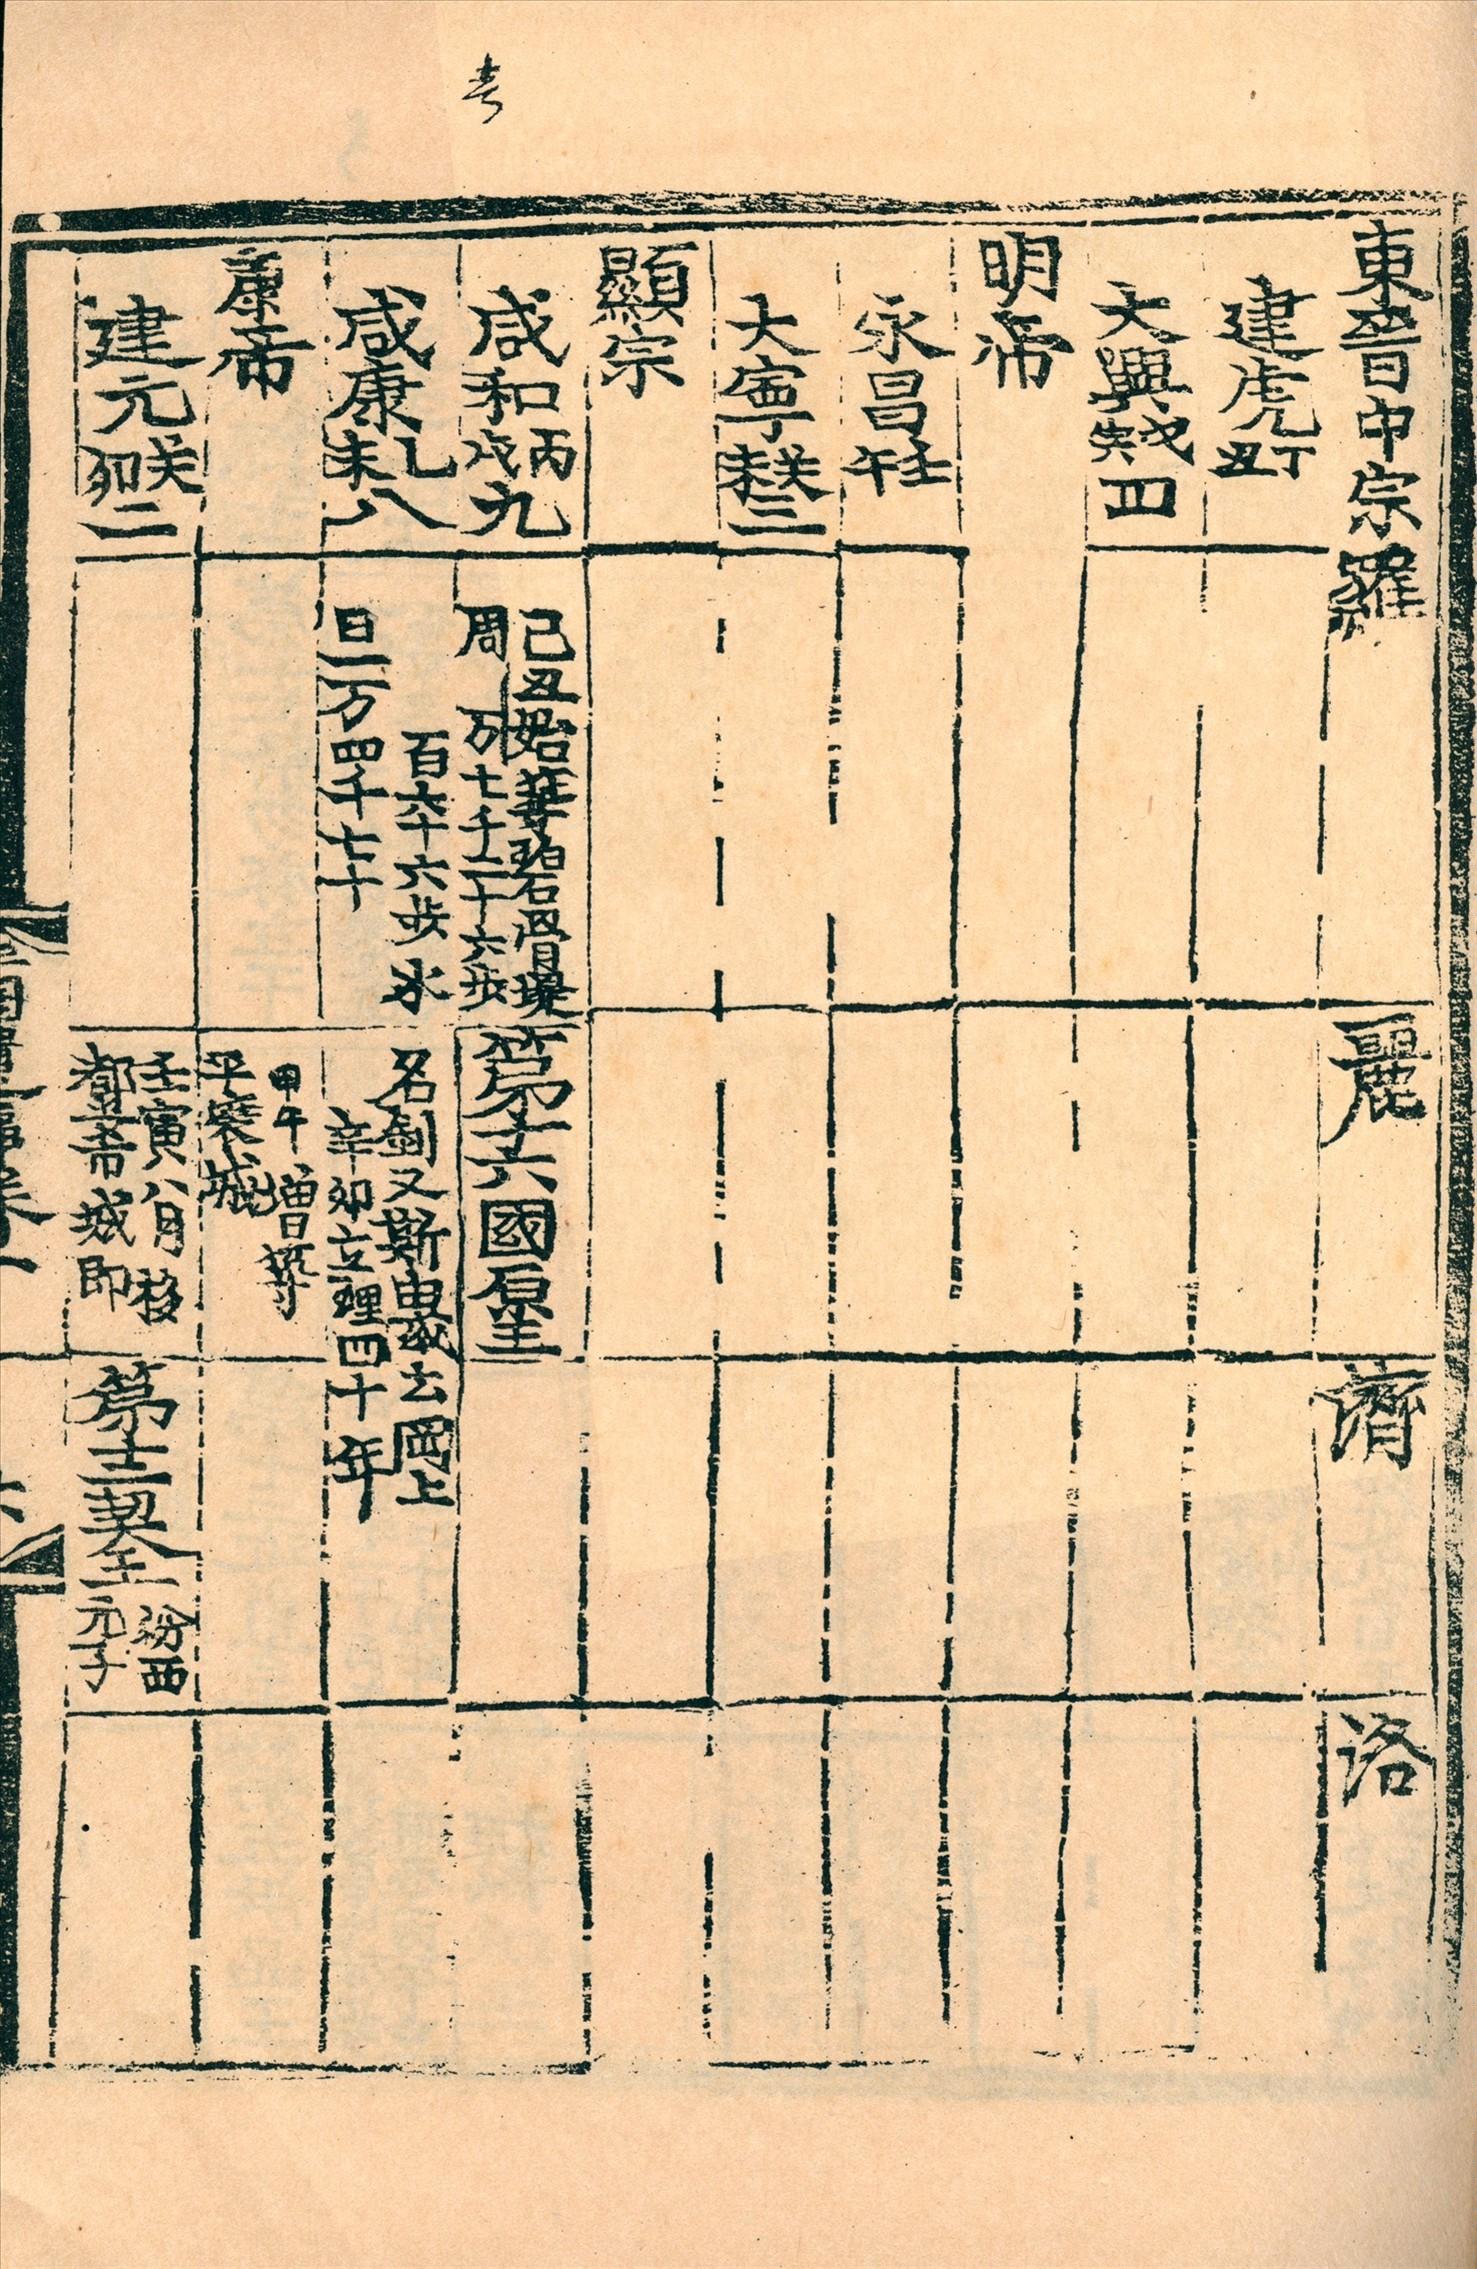 考
東晉中宗 羅 麗 濟 洛
建虎丁丑
大興戊寅四
明帝
永昌壬午
大寧癸未三
顯宗
咸和丙戌九
己丑始築碧骨堤
周 万七千二十六歩
百六十六歩水
田一万四千七十
第十六國原王
名釗又斯由或云岡上
辛卯立理四十年
咸康乙未八
甲午增築
平壤城
康帝
建元癸卯二
壬寅八月移
都安市城即
第十二契王
汾西
元子